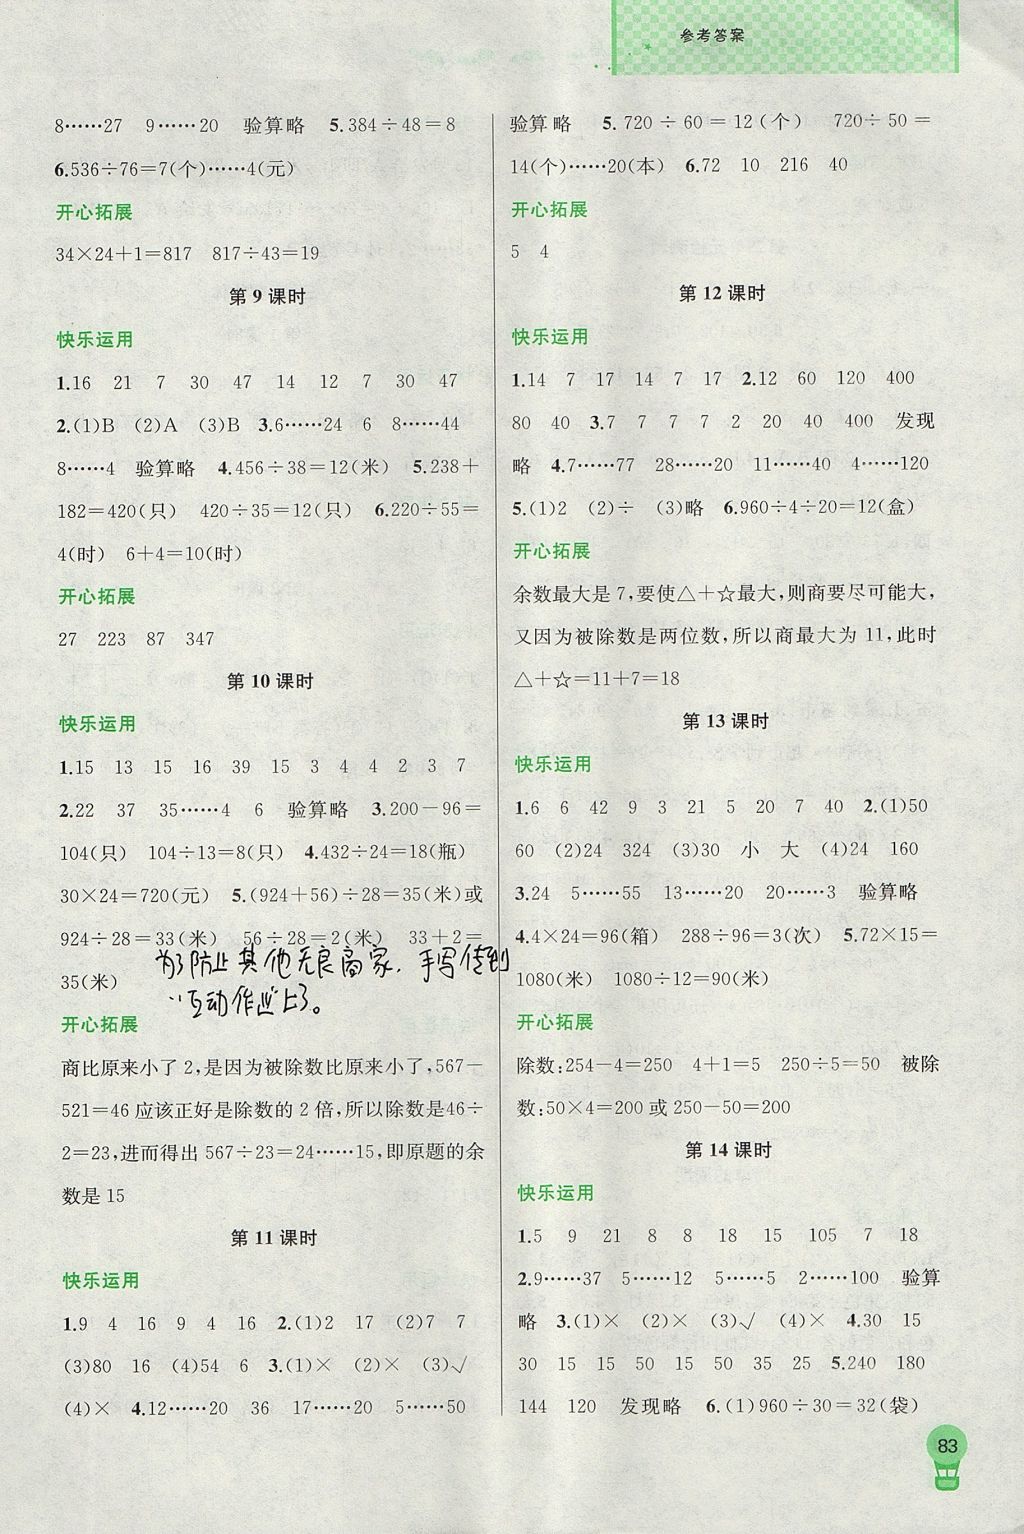 参考答案
8……27 9……20 验算略 5.384÷48=8
6.536÷76=7(个)……4(元)
开心拓展
34×24+1=817 817÷43=19
第9课时
快乐运用
1.16 21 7 30 47 14 12 7 30 47
2.(1)B (2)A (3)B 3.6……24 6 8……44
8……4 验算略 4.456÷38=12(米) 5.238+
182=420(只) 420÷35=12(只) 6.220÷55=
4(时) 6+4=10(时)
开心拓展
27 223 87 347
第10课时
快乐运用
1.15 13 15 16 39 15 3 4 4 2 3 7
2.22 37 35……4 6 验算略 3.200-96=
104(只) 104÷13=8(只) 4.432÷24=18(瓶)
30×24=720(元) 5.(924+56)÷28=35(米)或
924÷28=33(米) 56÷28=2(米) 33+2=
35(米)
为了防止其他无良商家,手写传到
"互动作业"上了。
开心拓展
商比原来小了2,是因为被除数比原来小了,567-
521=46应该正好是除数的2倍,所以除数是46÷
2=23,进而得出567÷23=24……15,即原题的余
数是15
第11课时
快乐运用
1.9 4 16 9 4 16 2.(1)2 17 (2)7 7
(3)80 16 (4)54 6 3.(1)× (2)× (3)√
(4)× 4.12……20 36 17……20 5……50
验算略 5.720÷60=12(个) 720÷50=
14(个)……20(本) 6.72 10 216 40
开心拓展
5 4
第12课时
快乐运用
1.14 7 17 14 7 17 2.12 60 120 400
80 40 3.7 7 7 7 2 20 40 400 发现
略 4.7……77 28……20 11……40 4……120
5.(1)2 (2)÷ (3)略 6.960÷4÷20=12(盒)
开心拓展
余数最大是7,要使△+☆最大,则商要尽可能大,
又因为被除数是两位数,所以商最大为11,此时
△+☆=11+7=18
第13课时
快乐运用
1.6 6 42 9 3 21 5 20 7 40 2.(1)50
60 (2)24 324 (3)30 小 大 (4)24 160
3.24 5……55 13……20 20……3 验算略
4.4×24=96(箱) 288÷96=3(次) 5.72×15=
1080(米) 1080÷12=90(米)
开心拓展
除数:254-4=250 4+1=5 250÷5=50 被除
数:50×4=200或250-50=200
第14课时
快乐运用
1.5 9 21 8 8 18 15 105 7 18
2.9……37 5……12 5……5 2……100 验算
略 3.(1)× (2)× (3)√ (4)× 4.30 15
30 15 15 50 15 50 35 25 5.240 180
144 120 发现略 6.(1)960÷30=32(袋)
83